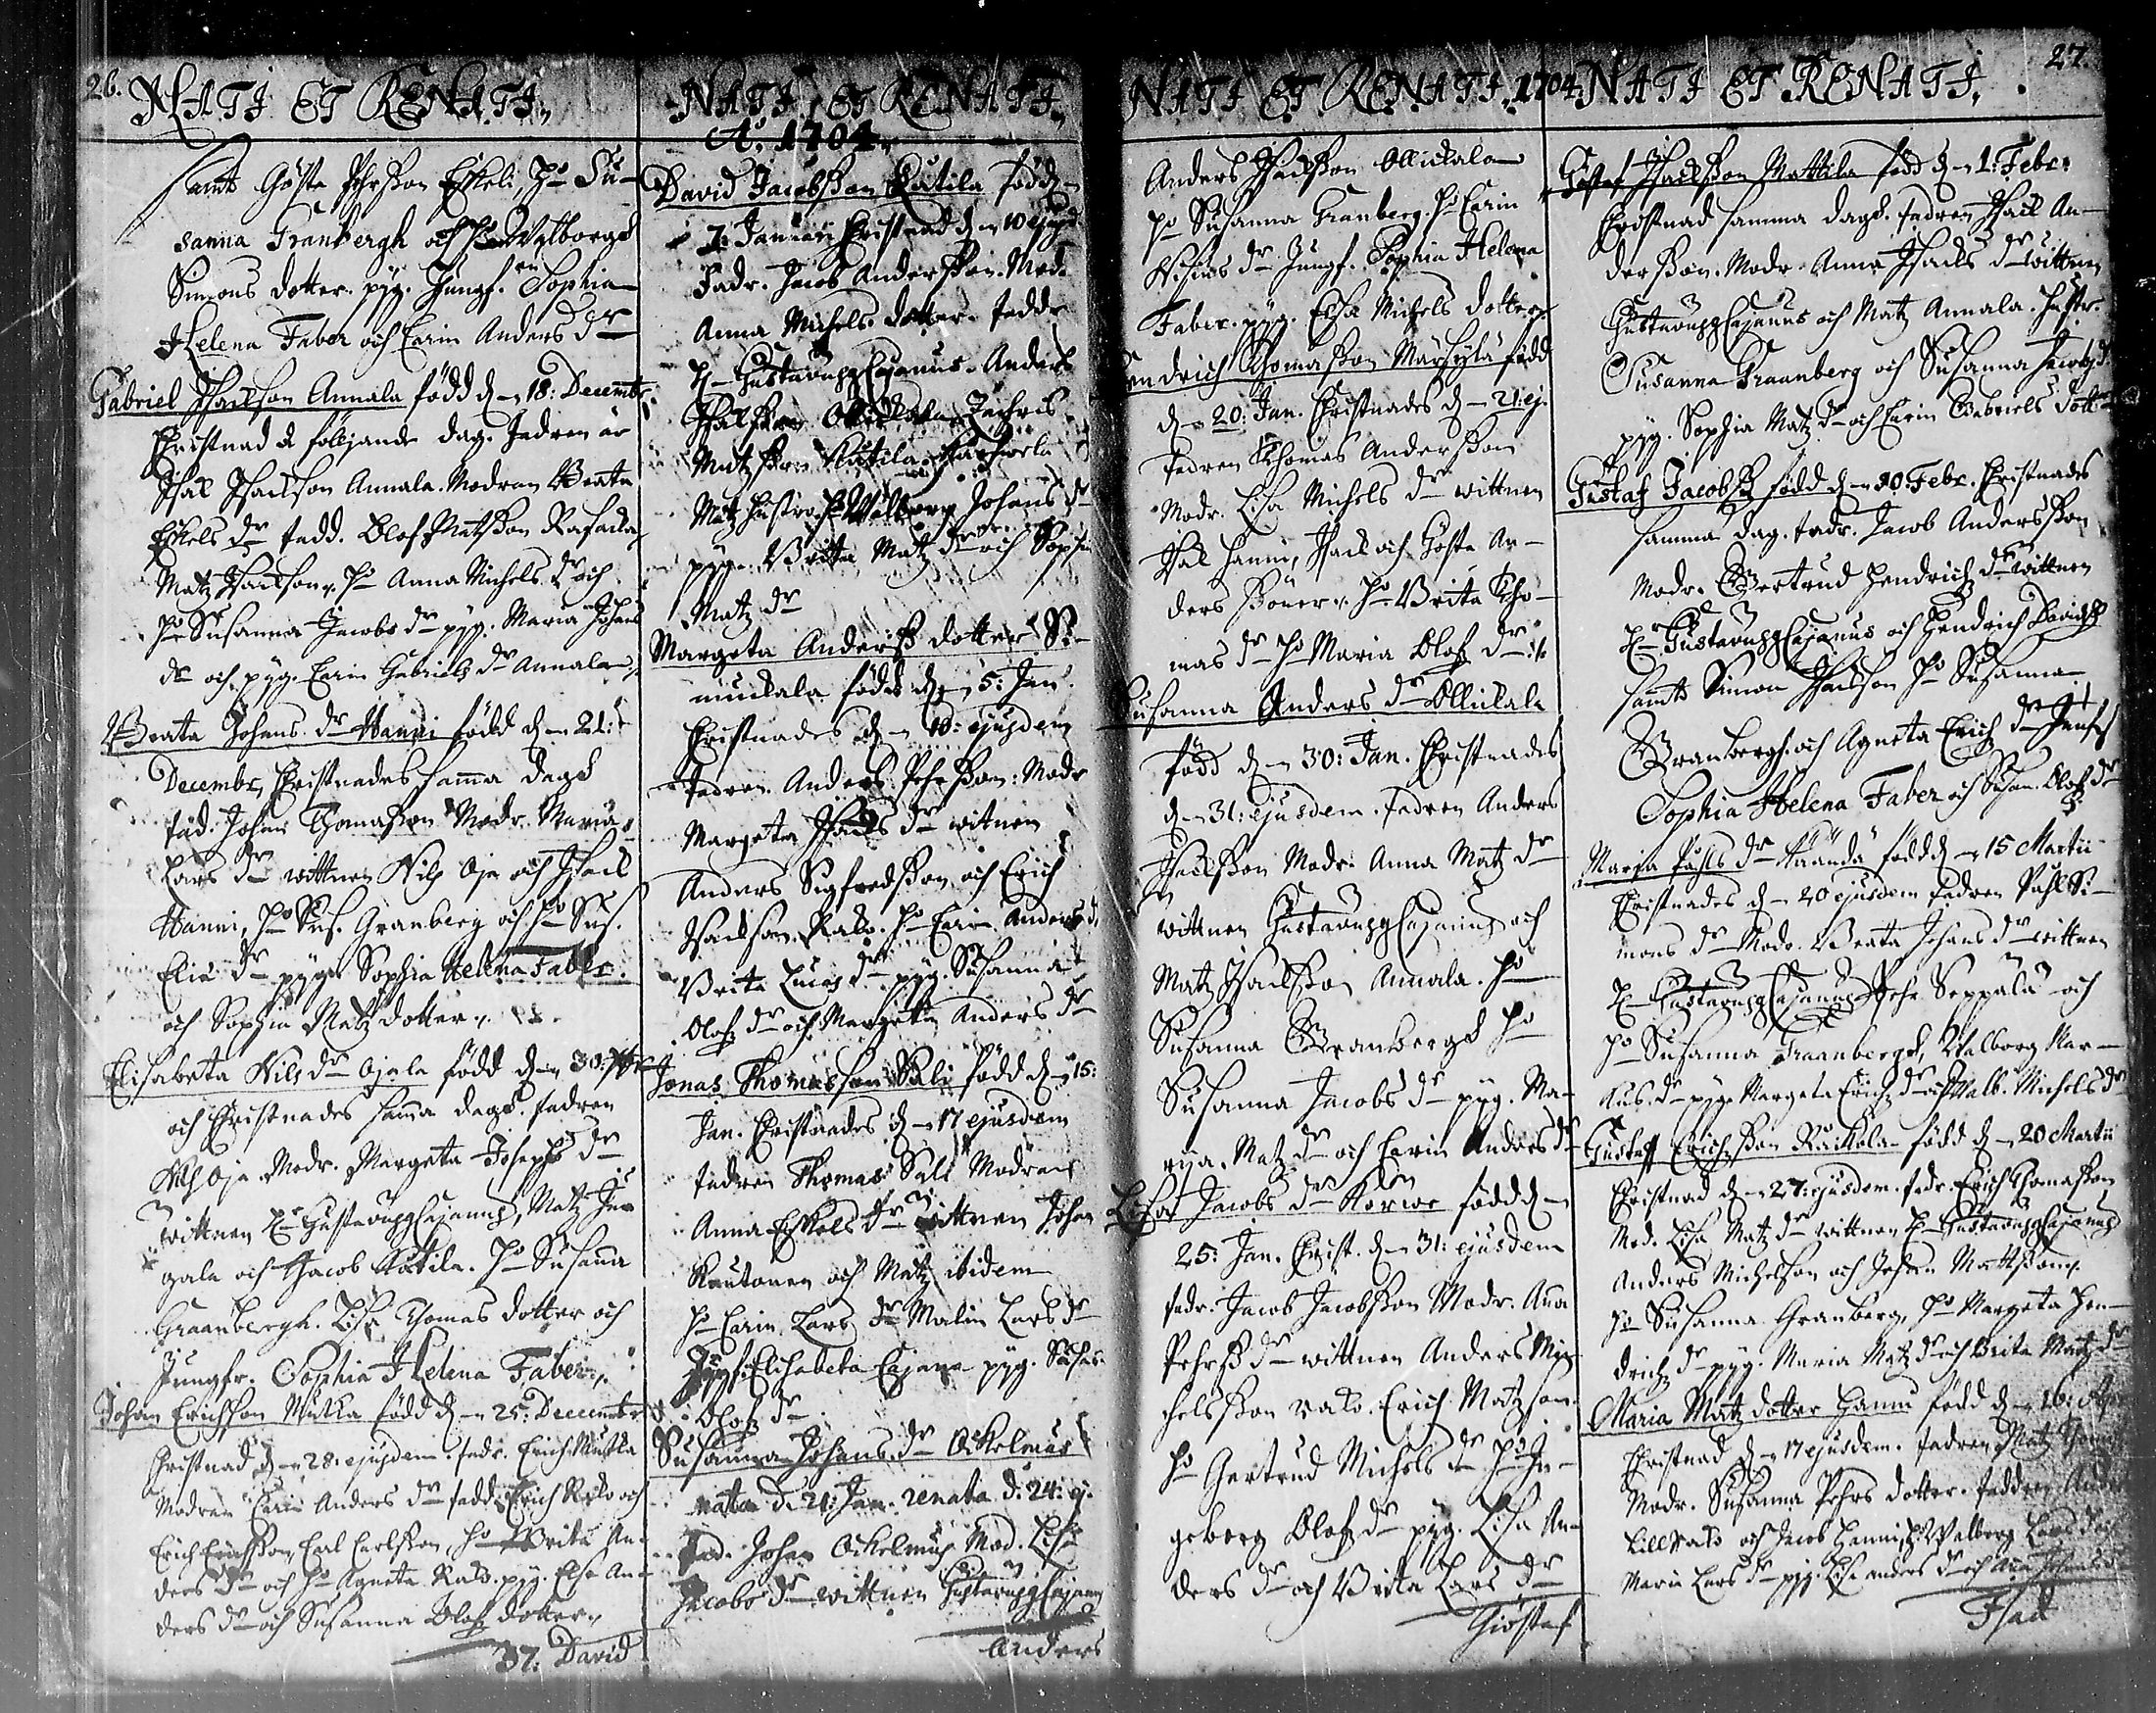 26.
NATI ET RENATI.
samt Gösta Pehrsson Eskeli, H:o Su-
sanna Granbergh och H:o Walborgd
Simons dotter. pyg. Jungf. Sophia
Helena Faber och Carin Anders dr
Gabriel Isackson Annala född d-n 18: Decembr.
Christnad följande dag. Fadren är
Isac Isackson Annala. Modren Beata
Eskels dr fadd. Olof Mattsson
Matz Isackson. H:o Anna Michels dr och
H:o Susanna Jacobs dr pyg. Maria Johans
dr och pyg. Carin Gabriels dr Annala.
Beata Johans dr Hanni född d-n 21:
Decembr, Christnades samma dagh
fad. Johan Thomasson Modr. Maria
Lars dr wittnen Nils Oja och Isack
Hanni, H:o Sus. Granberg och H:o Sus.
Eliæ dr pyg. Sophia Helena Faber.
och Sophia Matz dotter.
Elisabeta Nils dr Ojala född d-n 30:
och Christnades samma dagh. fadren
Nils Oja Modr. Margeta Josephs dr
wittnen H-r Gustavus Cajanus, Matz
gala och Jacob Kutila. H:o Susanna
Graanbergh. Lisa Thomas dotter och
Jungfr. Sophia Helena Faber.
Johan Erichson Mutka född d-n 25: Decembr
Christnad d-n 28. ejusdem. fadr. Erich Mutka
Modren Carin Anders dr fadd. Erich Ralo och
Erich Erichsson, Carl Carlsson, H:o Brita An-
ders dr och H:o Agneta Ralo. pyg. Elsa An-
ders dr och Susanna Olofz dotter.
37. David
NATI ET RENATI.
A:o 1704.
David Jacobsson Kutila född
7: Januari Christnad d-n 10 ejusd
Fadr. Jacob Andersson. Mod.
Anna Michels dotter. fadd
H-r Gustavus Cajanus. Anders
Isacsson Ollickala
Matz son Kutila
Matz hustro H:o Walborg Johans dr
pyg. Britta Matz dr och Sophia
Matz dr
Margeta Anderss dotter Si-
muckala född d-n 5: Jan
Christnades d-n 10: ejusdem
Fadren Anders Pehrsson: Modr
Margeta Isacks dr witnen
Anders Sigfredsson och Erich
Isackson Ralo. H:o Carin Anders dr
Brita Lucas dr pyg. Susanna
Olofz dr och Margeta Anders dr
Jonas Thomasson Sali född d-n 15:
Jan. Christnades d-n 17 ejusdem
fadren Thomas Sali Modren
Anna Eskels dr wittnen Johan
Kautonen och Matz ibidem
H:o Carin Lars dr Malin Lars dr
Jungf. Elisabeta Cajana pyg. Susan
Olofz dr.
Susanna Johans dr Ockelmus
nata d. 21: Jan. renata d. 24: ej.
Fad. Johan Ockelmus Mod. Lisa
Jacobs dr wittnen Gustavus Cajanus
Anders
NATI ET RENATI. 1704
Anders Isacksson Ollickala
H:o Susanna Granberg. H:o Carin
dr Jungf. Sophia Helena
Faber. pyg. Elsa Michels dotter
Hendrich Thomasson Märsylä född
d-n 20: Jan. Christnades d-n 21: ej.
Fadren Thomas Andersson
Modr. Lisa Michels dr wittnen
Hannu, Isack och Gösta An-
ders söner. H:o Brita Tho-
mas dr H:o Maria Olofz dr
Susanna Anders dr Ollikala
född d-n 30: Jan. Christnades
d-n 31: ejusdem. Fadren Anders
Isacksson Modr. Anna Matz dr
wittnen Gustavus Cajanus och
Matz Isacksson Annala. H:o
Susanna Granbergh H:o
Susanna Jacobs dr pyg. Ma-
ria Matz dr och Carin Anders dr
Lisa Jacobs dr Korwe född d-n
25: Jan. Christ. d-n 31: ejusdem
fadr. Jacob Jacobsson Modr. Anna
Pehrs dr wittnen Anders Mi-
chelsson Ralo. Erich Matzson.
H:o Gertrud Michels dr H:o In-
geborg Olofz dr pyg. Lisa An-
ders dr och Brita Lars dr
Giöstaf
NATI ET RENATI.
27.
Göstaf Isacksson Mattila född d-n 1: Febr:
Christnad samma dagh. fadren Isack An-
dersson. Modr. Anna Isacks dr wittnen
Gustavus Cajanus och Matz Annala. Hustr.
Susanna Graanberg och Susanna Jacobs dr
pyg. Sophia Matz dr och Carin Gabriels dott
Gustaf Jacobss född d-n 20. Febr. Christnades
samma dag. fadr. Jacob Andersson
Modr. Gertrud Hendrichs dr wittnen
H-r Gustavus Cajanus och Hendrich Davidss
samt Simon Isackson H:o Susanna
Granbergh och Agneta Erichz dr Jungf
Sophia Helena Faber och Susan. Olofz dr
Maria Påhls dr Känndä född d-n 15 Martii
Christnades d-n 20 ejusdem fadren Påhl Si-
mons dr Modr. Beata Johans dr wittnen
H-r Gustavus Cajanus Pehr Seppälä och
H:o Susanna Graanbergh, Walborg Mar-
kus dr pyg. Margeta Erichz dr och Walb. Michels dr
Gustaf Erichsson Räikola född d-n 20 Martii
Christnad d-n 27: ejusdem. fadr. Erich Thomasson
Mod. Lisa Matz dr wittnen H-r Gustavus Cajanus
Anders Michelson och Johan Mattsson.
H:o Susanna Granberg, H:o Margeta Hen-
drichz dr pyg. Maria Matz dr och Brita Matz dr
Maria Matz dotter Hannu född d-n 16: Apr
Christnad d-n 17 ejusdem. fadren Matz
Modr. Susanna Pehrs dotter. faddren
Lill Ralo och Jacob Hanni H:o Walborg Lars dr
Maria Lars dr pyg. Lisa Anders dr och
Isack